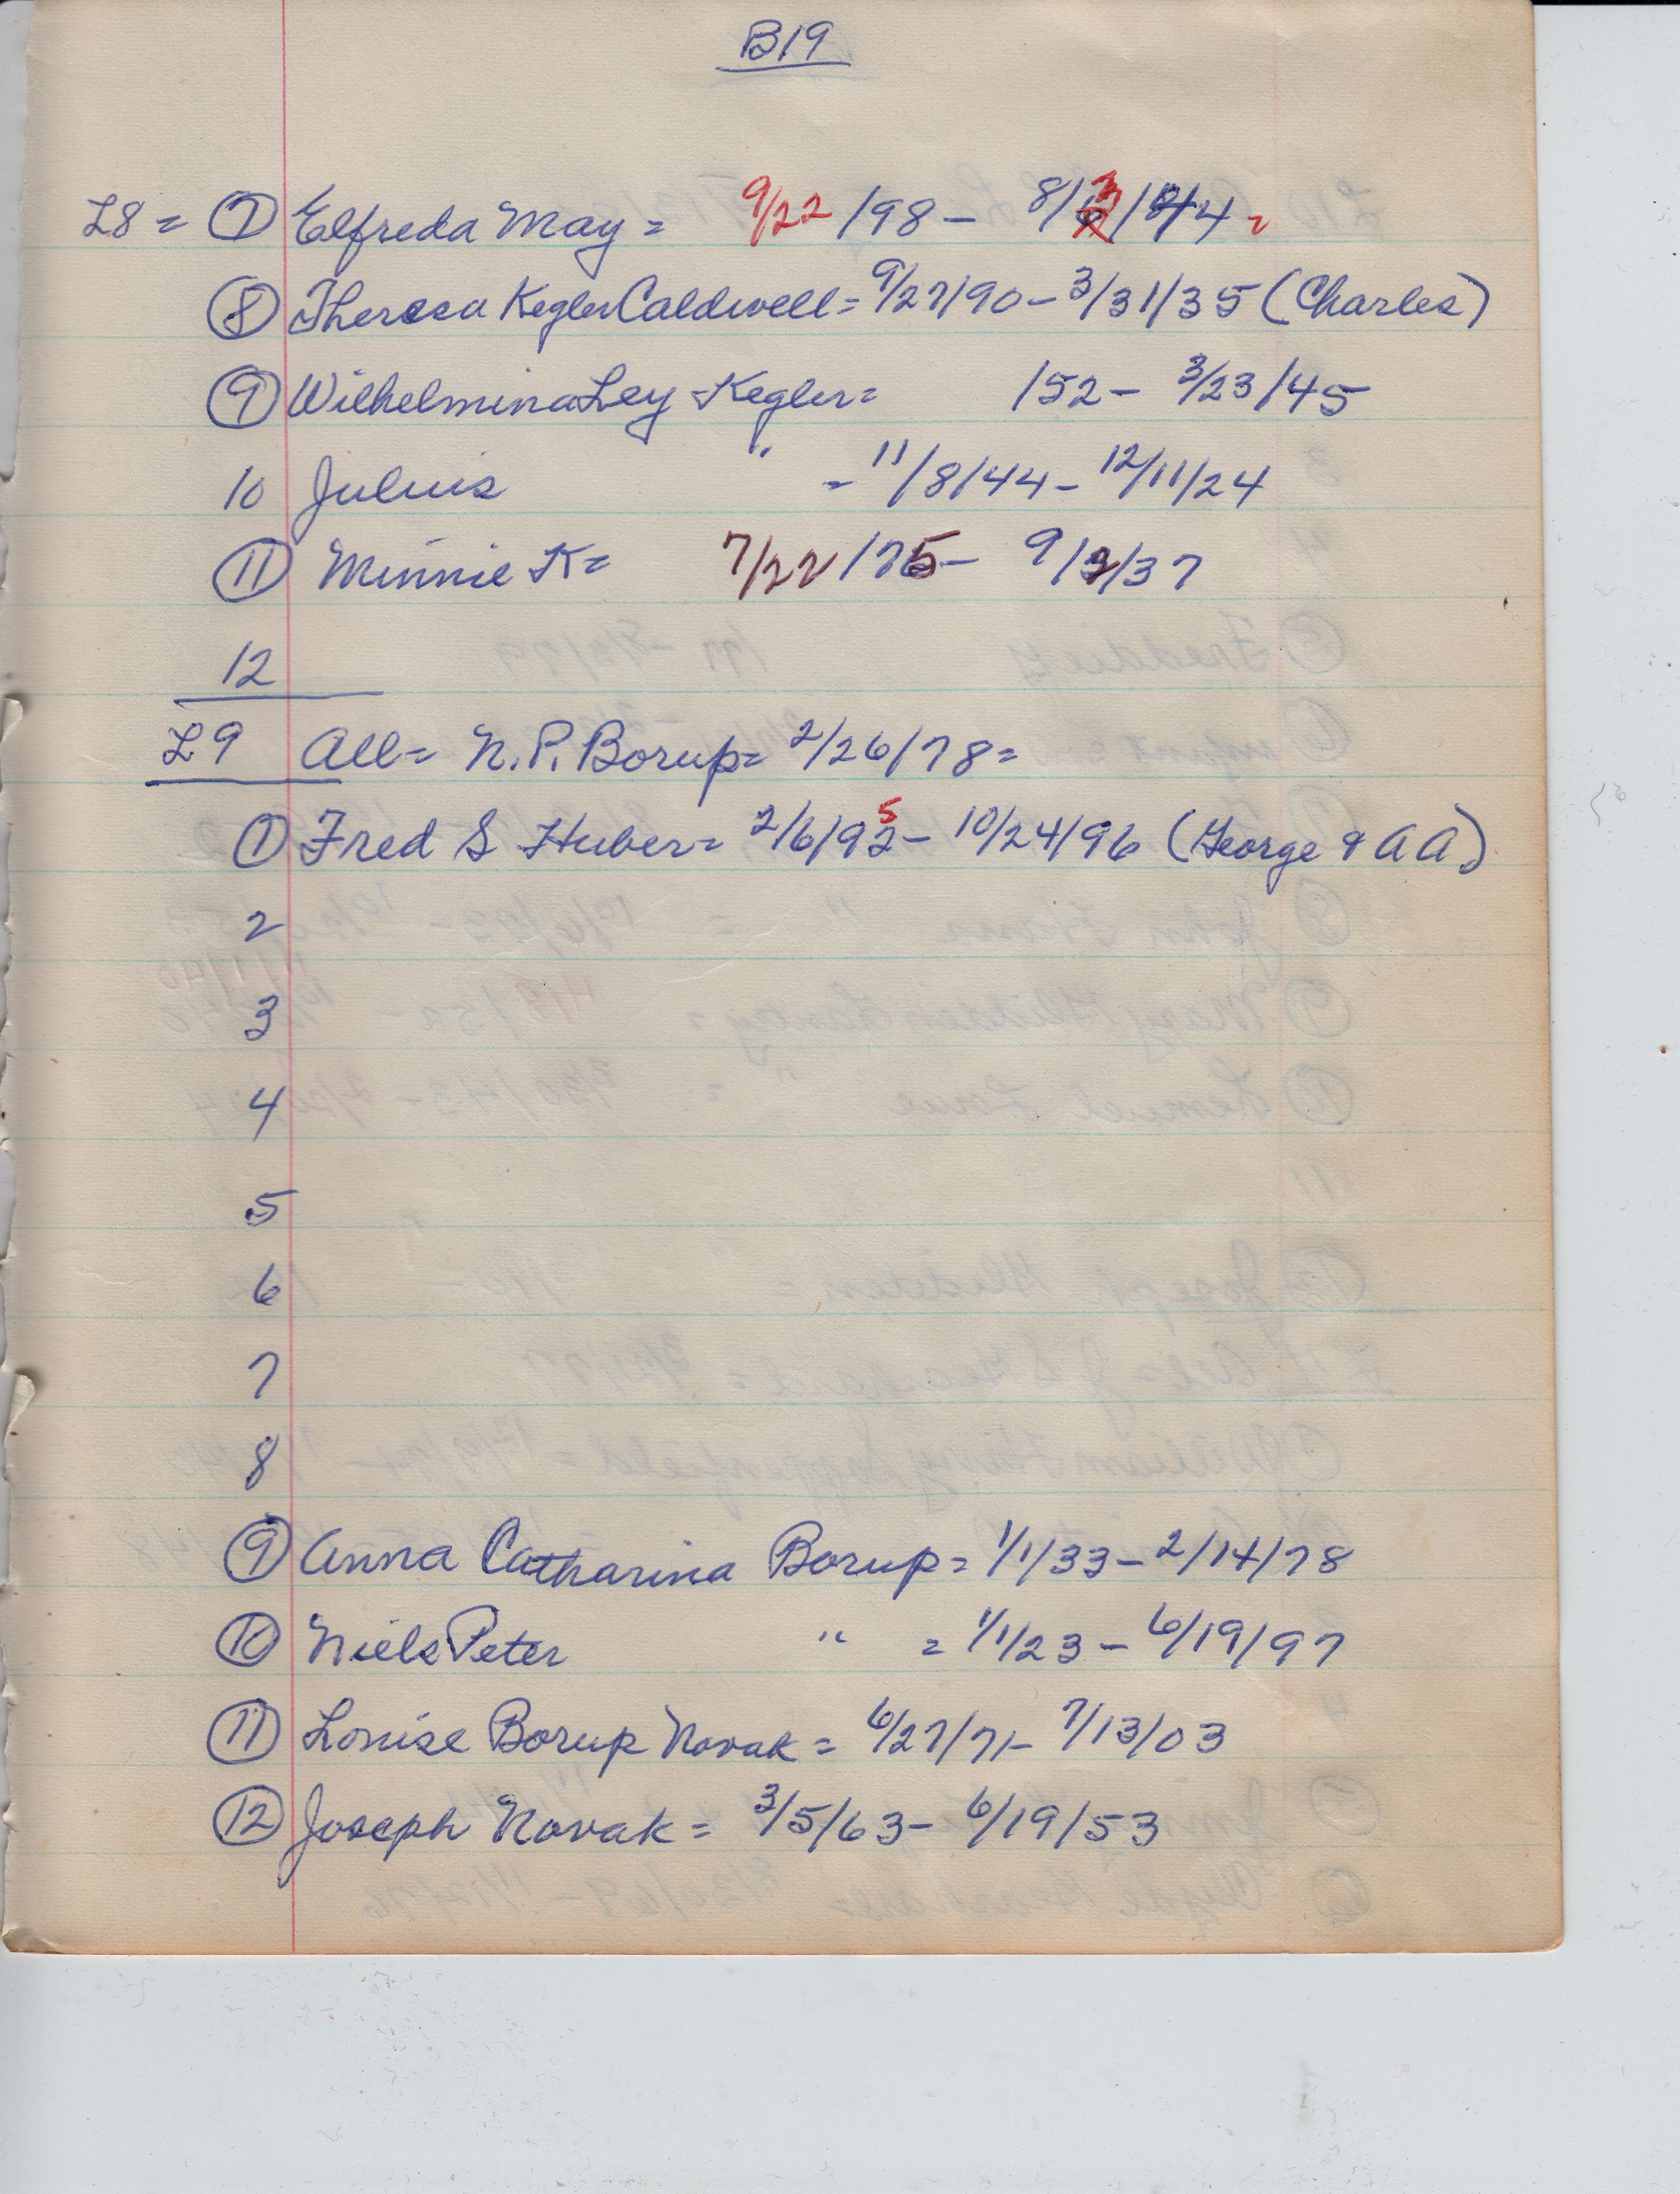 B19
L8 = 7 Elfreda May = 9/22/98 - 8/13/44 =
8 Theresa Kegler Caldwell = 9/27/90 - 3/31/35 (Charles)
9 Wilhelmina Ley Kegler = /52 - 3/23/45
10 Juluis " = 11/8/44 - 12/11/24
11 Minnie K = 7/22/75 - 9/2/37
12
L9 All = N. P. Borup = 2/26/78 =
1 Fred S Huber = 2/6/95 - 10/24/96 (George & A A)
2
3
4
5
6
7
8
9 Anna Catharina Borup = 1/1/33 - 2/14/78
10 Niels Peter " = 1/1/23 - 6/19/97
11 Louise Borup Novak = 6/27/71 - 7/13/03
12 Joseph Novak = 3/5/63 - 6/19/53